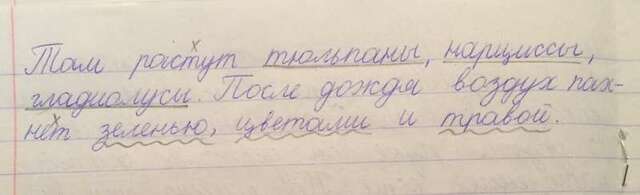 Там растут тюльпаны, нарциссы,
гладиолусы. После дождя воздух пах-
нет зеленью, цветами и травой.